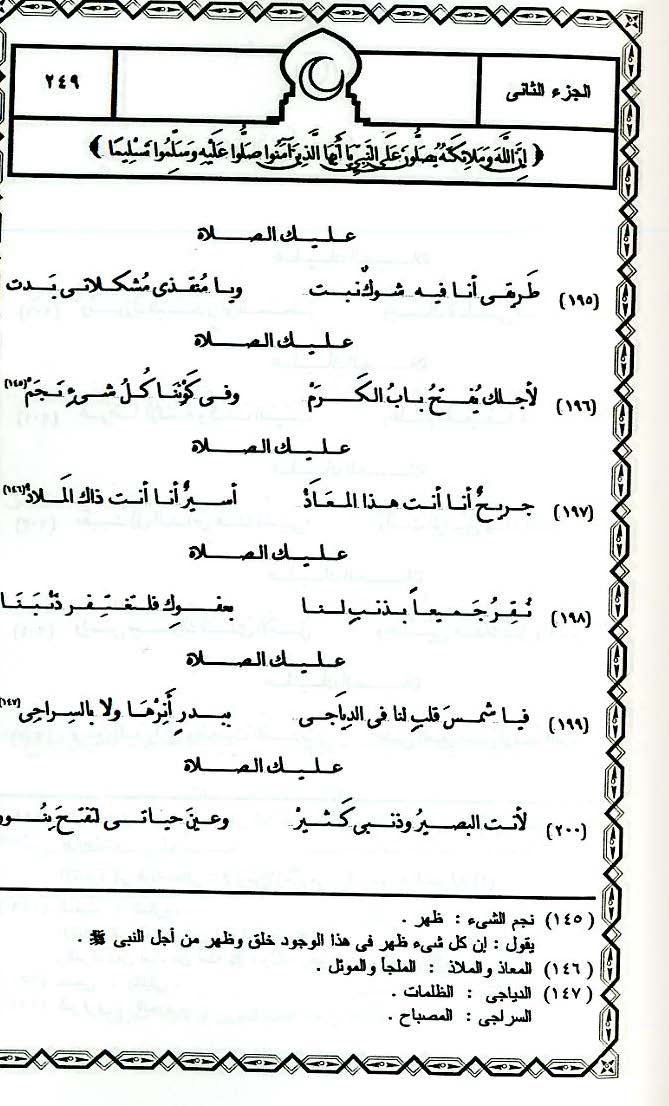 الجزء الثانى
٢٤٩
﴿ إِنَّ اللَّهَ وَمَلَائِكَتَهُ يُصَلُّونَ عَلَى النَّبِىِّ يَا أَيُّهَا الَّذِينَ آمَنُوا صَلُّوا عَلَيْهِ وَسَلِّمُوا تَسْلِيمًا ﴾
عليك الصلاة
(١٩٥) طَرِيقى أنا فيه شوكٌ نبت ويا مُنقذى مُشكلاتى بَدت
عليك الصلاة
(١٩٦) لأجلك يُفتحُ بابُ الكَرَمْ وفى كَوْنِنَا كُلُ شىءٍ نَجَمْ (١٤٥)
عليك الصلاة
(١٩٧) جريحٌ أنا أنت هذا المعَاذْ أسيرٌ أنا أنت ذاك المَلاذْ (١٤٦)
عليك الصلاة
(١٩٨) نُقِرُ جَميعاً بذنبٍ لنا بعفوِك فلتغتفر ذنْبَنَا
عليك الصلاة
(١٩٩) فيا شمسَ قلبٍ لنا فى الدياَجى ببدرٍ أَنِرْهَا ولا بالسراجِى (١٤٧)
عليك الصلاة
(٢٠٠) لأنت البصيرُ وذنبى كَثيرْ وعينَ حياتى لتفتحَ بِنُور
(١٤٥) نجم الشىء : ظهر .
يقول : إن كل شىء ظهر فى هذا الوجود خلق وظهر من أجل النبى ﷺ .
(١٤٦) المعاذ والملاذ : الملجأ والموئل .
(١٤٧) الدياجى : الظلمات .
السراجى : المصباح .